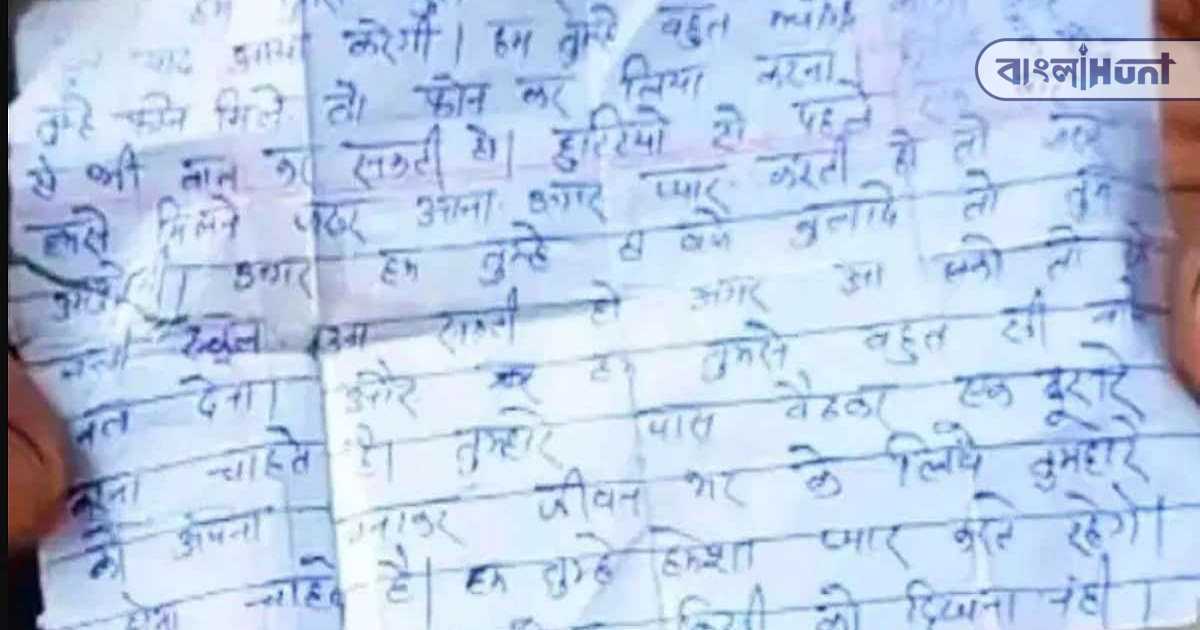 हम
याद करेगी। हम तुम्हे बहुत
বাংলাHunt
तुम्हे फोन मिले तो फोन कर लिया करना
से भी बात कर सकती हो। छुट्टियो से पहले
हमसे मिलने जरूर आना अगर प्यार करती हो तो जरूर
अगर हम तुम्हे 8 बजे बुलादे तो तुम
स्कूल आ सकती हो अगर आ सको तो
बता देना। और हम तुमसे बहुत सी बाते
करना चाहते है। तुम्हारे पास बैठकर एक दूसरे
को अपना बनाकर जीवन भर के लिये तुमहारे
होना चाहते है। हम तुम्हे हमेशा प्यार करते रहेगे।
किसी को दिखाना नही।